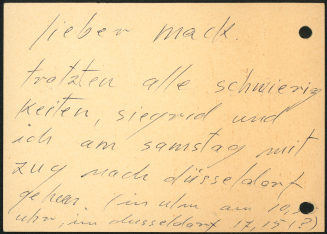 lieber mack.
trotzten alle schwierig
keiten, siegrid und
ich am samstag mit
zug nach düsseldorf
gehen. (in ulm am 10,
uhr, in düsseldorf 17,15 (?)